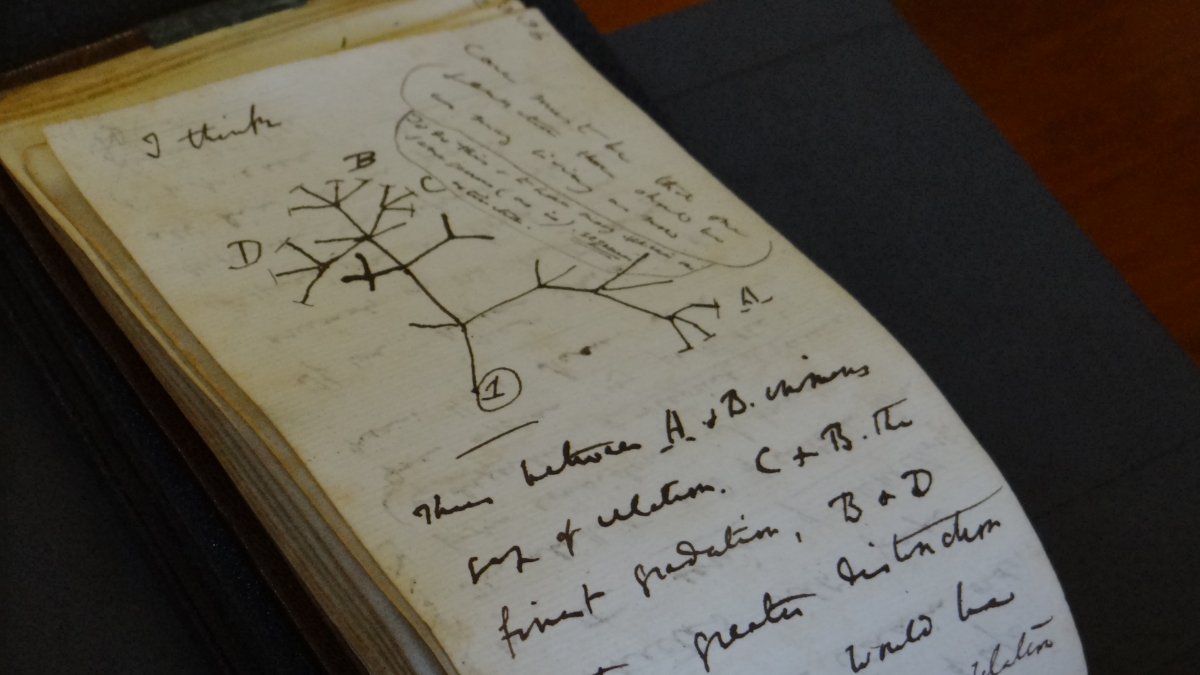 I think
Case must be
that one
generation then
should be
as many living
as now
To do this & to have many species in
same genus (as is)
requires
extinction
B
C
D
A
1
Thus between A & B. immens
gap of relation. C & B. The
finest gradation, B & D
greater distinction
would be
relation